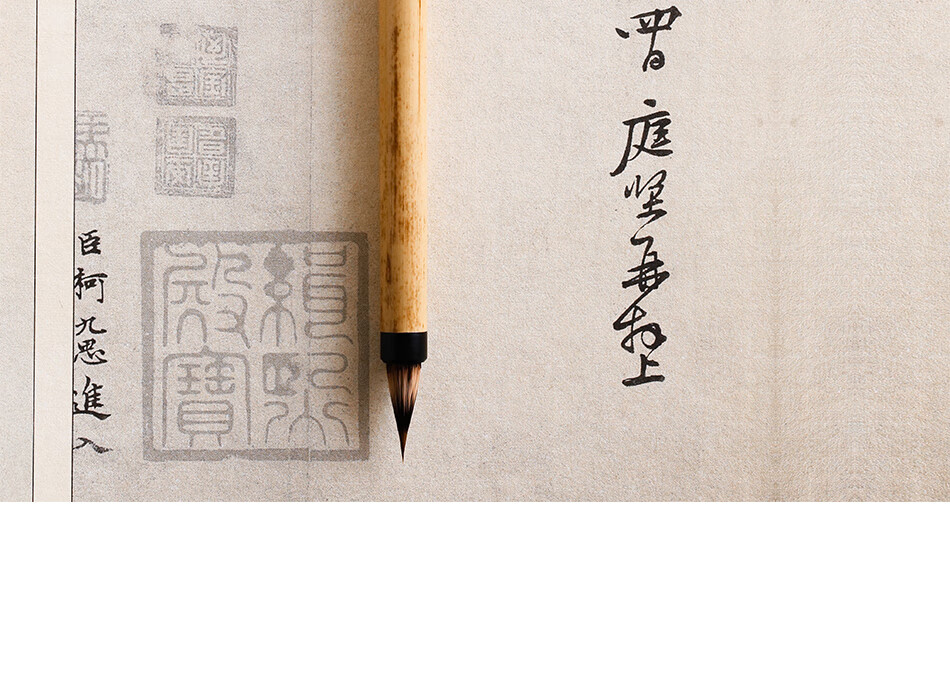 四日
庭堅再拜上
緝熙殿寶
臣柯九思進入